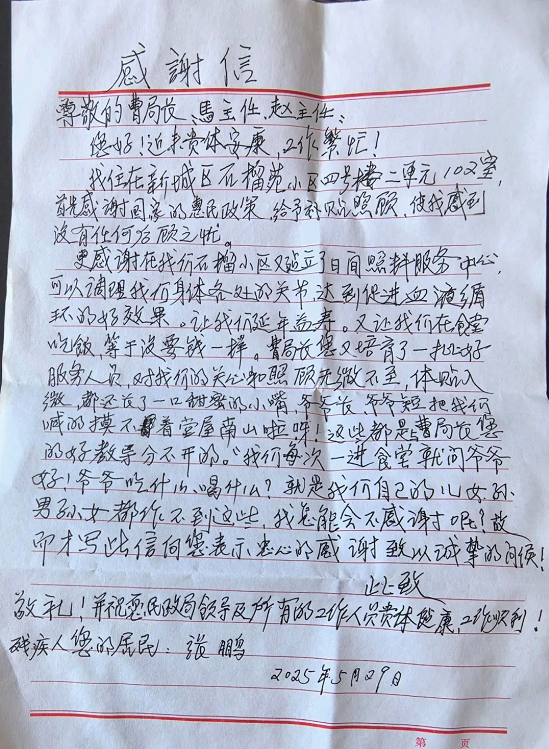 感謝信
尊敬的曹局长、馬主任、赵主任、
您好！近来贵体安康，工作繁忙！
我住在新城区石榴苑小区四号楼二单元102室，
首先感谢国家的惠民政策，给予补贴照顾，使我感到
没有任何后顾之忧。
更感谢在我们石榴小区又建立了日间照料服务中心，
可以调理我们身体各处的关节，达到促进血液循
环的好效果。让我们延年益寿。又让我们在食堂
吃饭，等于没要钱一样。曹局长您又培育了一批好
服务人员，对我们的关心和照顾无微不至，体贴入
微，都还长了一口甜蜜的小嘴，爷爷长，爷爷短把我们
喊的摸不着堂屋南山啦呀！这些都是与曹局长您
的好教导分不开的。“我们每次一进食堂就问爷爷
好！爷爷吃什么、喝什么？就是我们自己的儿女孙
男孙女都作不到这些，我怎能会不感谢呢？故
而才写此信向您表示忠心的感谢致以诚挚的问候！
此致
敬礼！并祝愿民政局领导及所有的工作人员贵体健康，工作顺利！
残疾人您的居民：張鹏
2025年5月29日
第 页